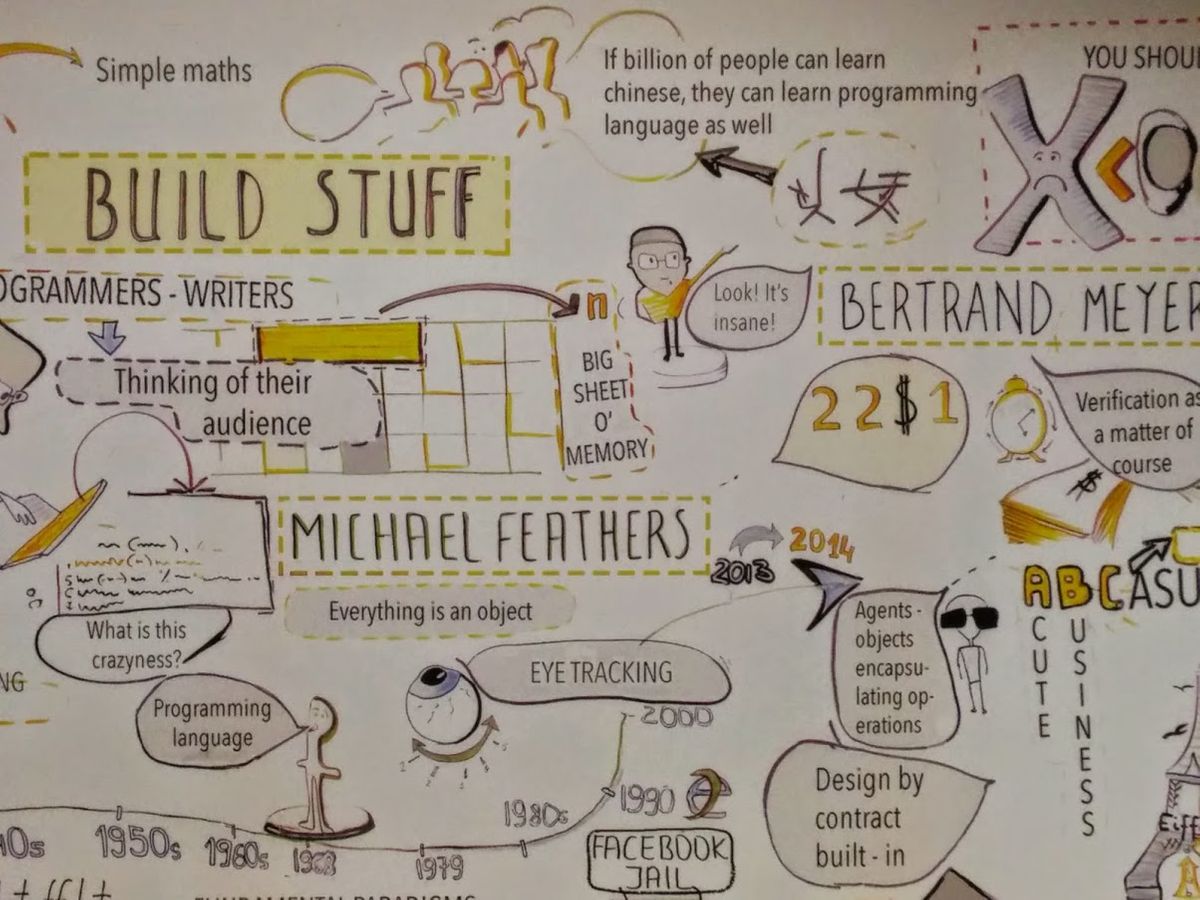 Simple maths
If billion of people can learn
chinese, they can learn programming
language as well
YOU SHOU
X<
BUILD STUFF
OGRAMMERS - WRITERS
Thinking of their
audience
n
BIG
SHEET
O'
MEMORY
Look! It's
insane!
BERTRAND MEYER
22$1
Verification as
a matter of
course
$
MICHAEL FEATHERS
Everything is an object
2013
2014
What is this
crazyness?
NG
Programming
language
EYE TRACKING
Agents -
objects
encapsu-
lating op-
erations
ABCASU
CUTE
USINESS
Design by
contract
built - in
40s
1950s
1960s
1968
1979
1980s
1990
2000
FACEBOOK
JAIL
Eiff
A
FUNDAMENTAL PARADIGMS